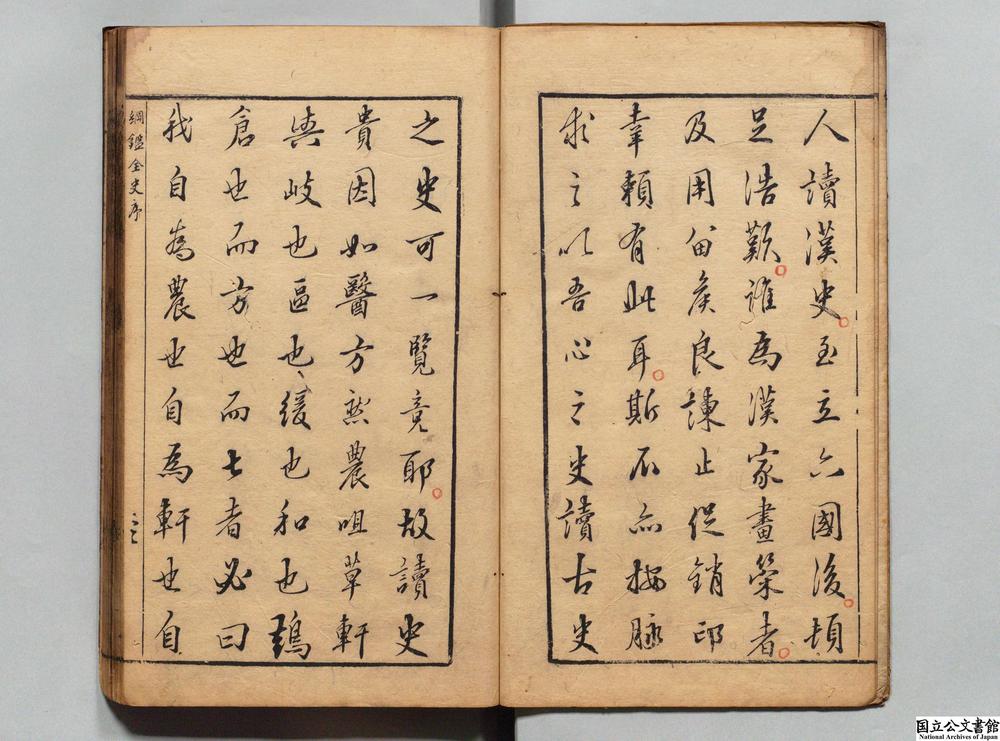 人讀漢史至立六國後頓
足浩歎誰為漢家畫策者
及用留侯良諫止促銷印
幸賴有此耳斯不亦按脉
求之以吾心之史讀古史
之史可一覽竟耶故讀史
貴因如醫方然農咀草軒
與岐也區也緩也和也鵲
倉也而方也而匕者必曰
我自為農也自為軒也自
綱鑑全史序
国立公文書館
National Archives of Japan